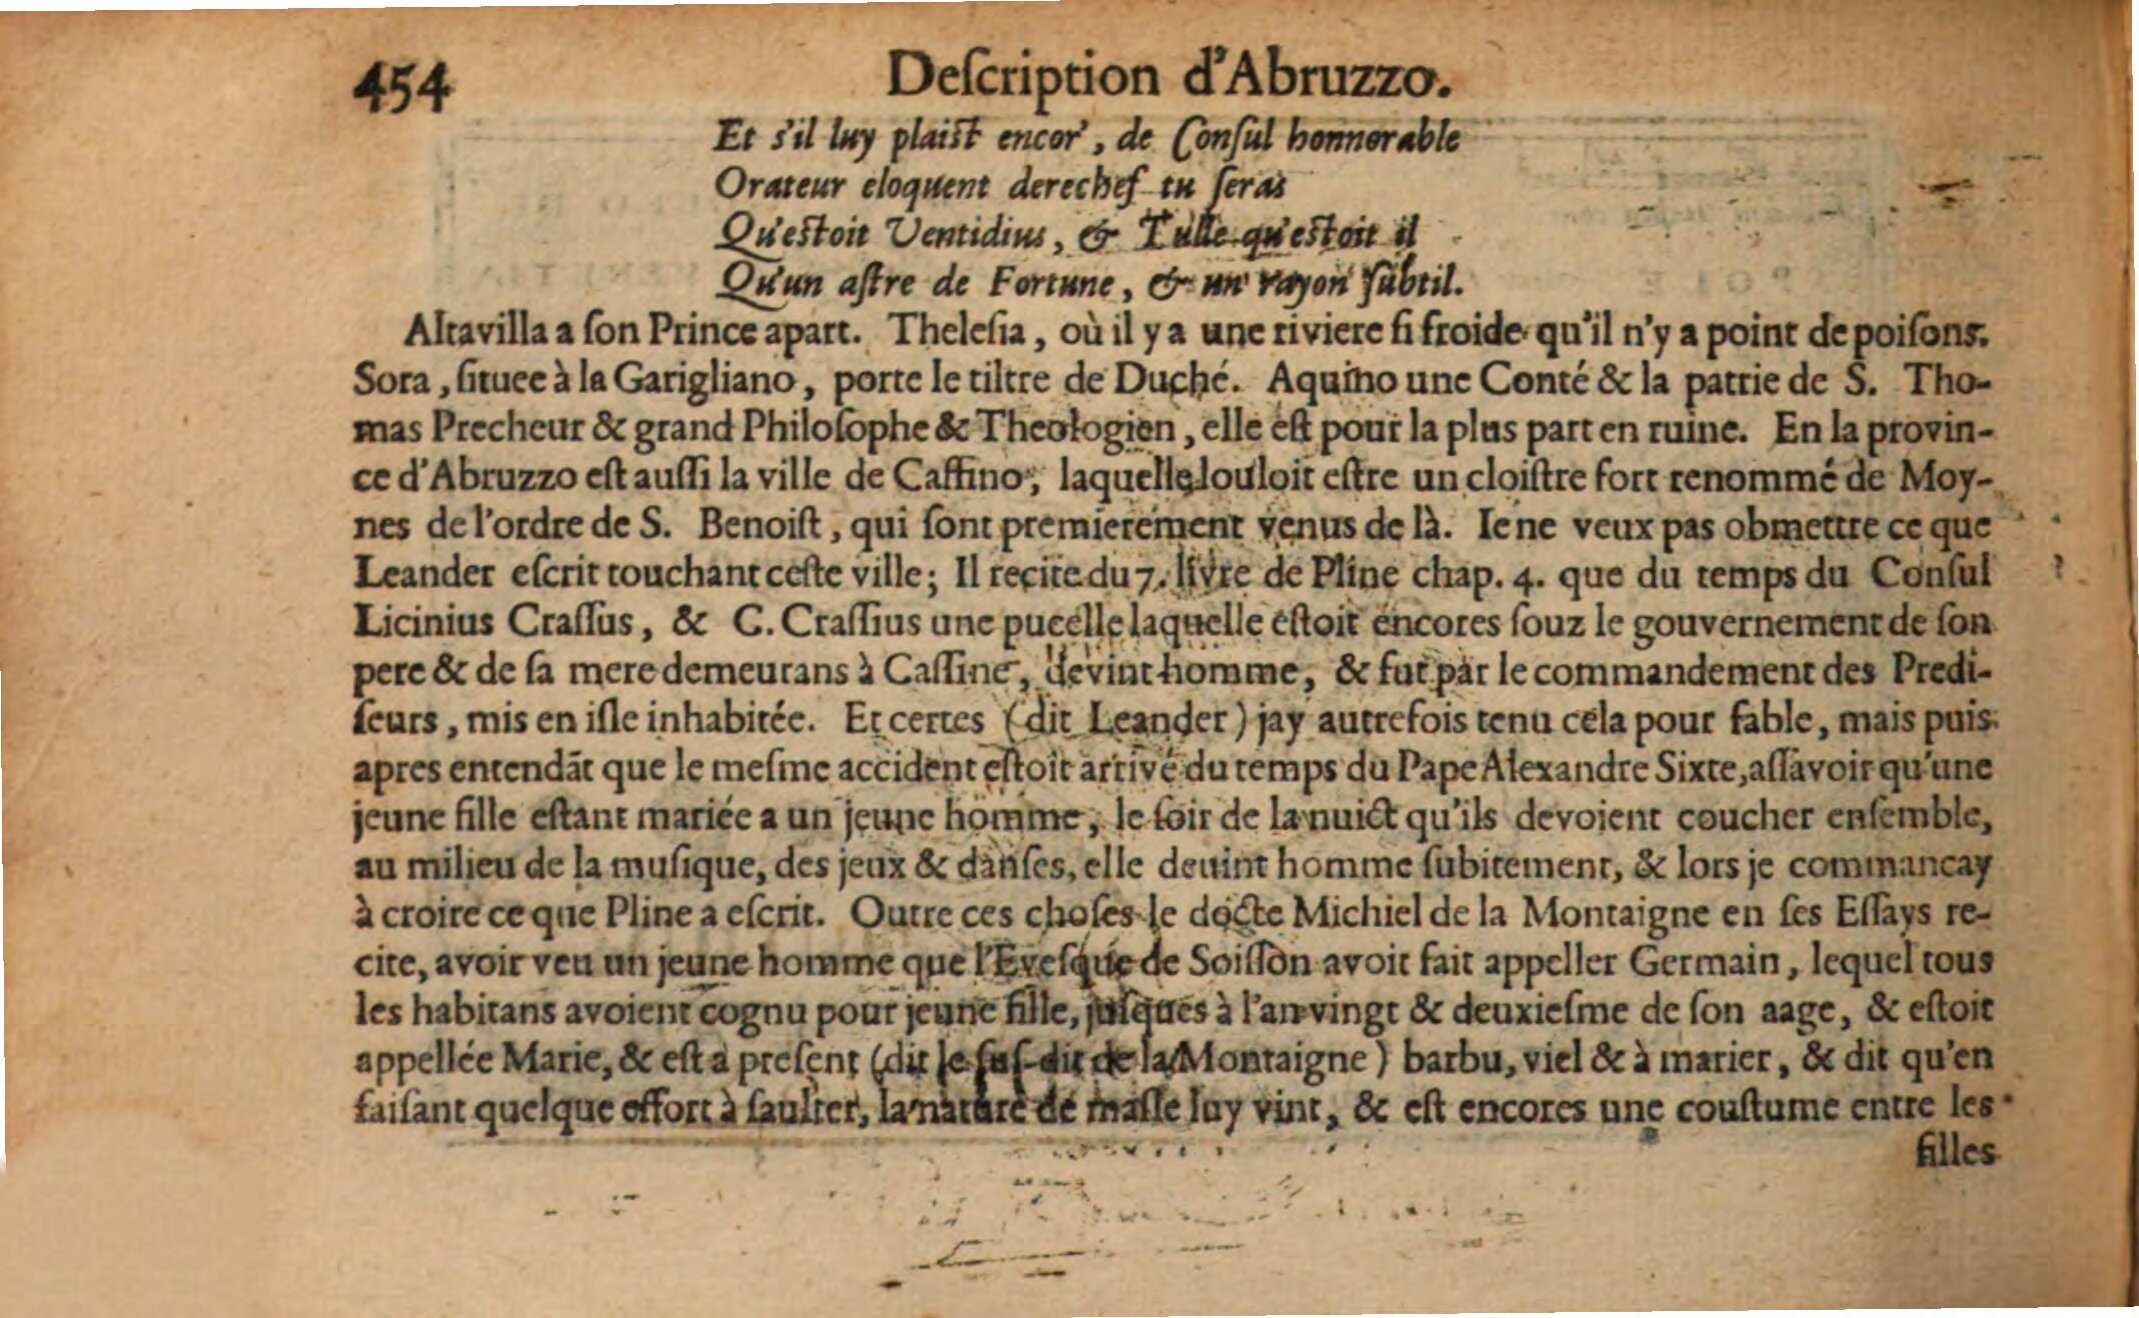 454 Deſcription d'Abruzzo.
Et s'il luy plaiſt encor', de Conſul honnorable
Orateur eloquent derechef tu ſeras
Qu'eſtoit Ventidius, & Tulle qu'eſtoit il
Qu'un aſtre de Fortune, & un rayon ſubtil.
Altavilla a ſon Prince apart. Theleſia, où il y a une riviere ſi froide qu'il n'y a point de poiſons.
Sora, ſituee à la Garigliano, porte le tiltre de Duché. Aquino une Conté & la patrie de S. Tho-
mas Precheur & grand Philoſophe & Theologien, elle eſt pour la plus part en ruine. En la provin-
ce d'Abruzzo eſt auſſi la ville de Caſſino, laquelle louloit eſtre un cloiſtre fort renommé de Moy-
nes de l'ordre de S. Benoiſt, qui ſont premierement venus de là. Ie ne veux pas obmettre ce que
Leander eſcrit touchant ceſte ville; Il recite du 7. livre de Pline chap. 4. que du temps du Conſul
Licinius Craſſus, & C. Craſſius une pucelle laquelle eſtoit encores ſouz le gouvernement de ſon
pere & de ſa mere demeurans à Caſſine, devint homme, & fut par le commandement des Predi-
ſeurs, mis en iſle inhabitée. Et certes (dit Leander) jay autrefois tenu cela pour fable, mais puis
apres entendāt que le meſme accident eſtoit arrivé du temps du Pape Alexandre Sixte, aſſavoir qu'une
jeune fille eſtant mariée a un jeune homme, le ſoir de la nuict qu'ils devoient coucher enſemble,
au milieu de la muſique, des jeux & danſes, elle deuint homme ſubitement, & lors je commancay
à croire ce que Pline a eſcrit. Outre ces choſes le docte Michiel de la Montaigne en ſes Eſſays re-
cite, avoir veu un jeune homme que l'Eveſque de Soiſſon avoit fait appeller Germain, lequel tous
les habitans avoient cognu pour jeune fille, juſques à l'an vingt & deuxieſme de ſon aage, & eſtoit
appellée Marie, & eſt a preſent (dit le ſuſ-dit de la Montaigne) barbu, viel & à marier, & dit qu'en
faiſant quelque effort à ſaulter, la nature de maſle luy vint, & eſt encores une couſtume entre les
filles